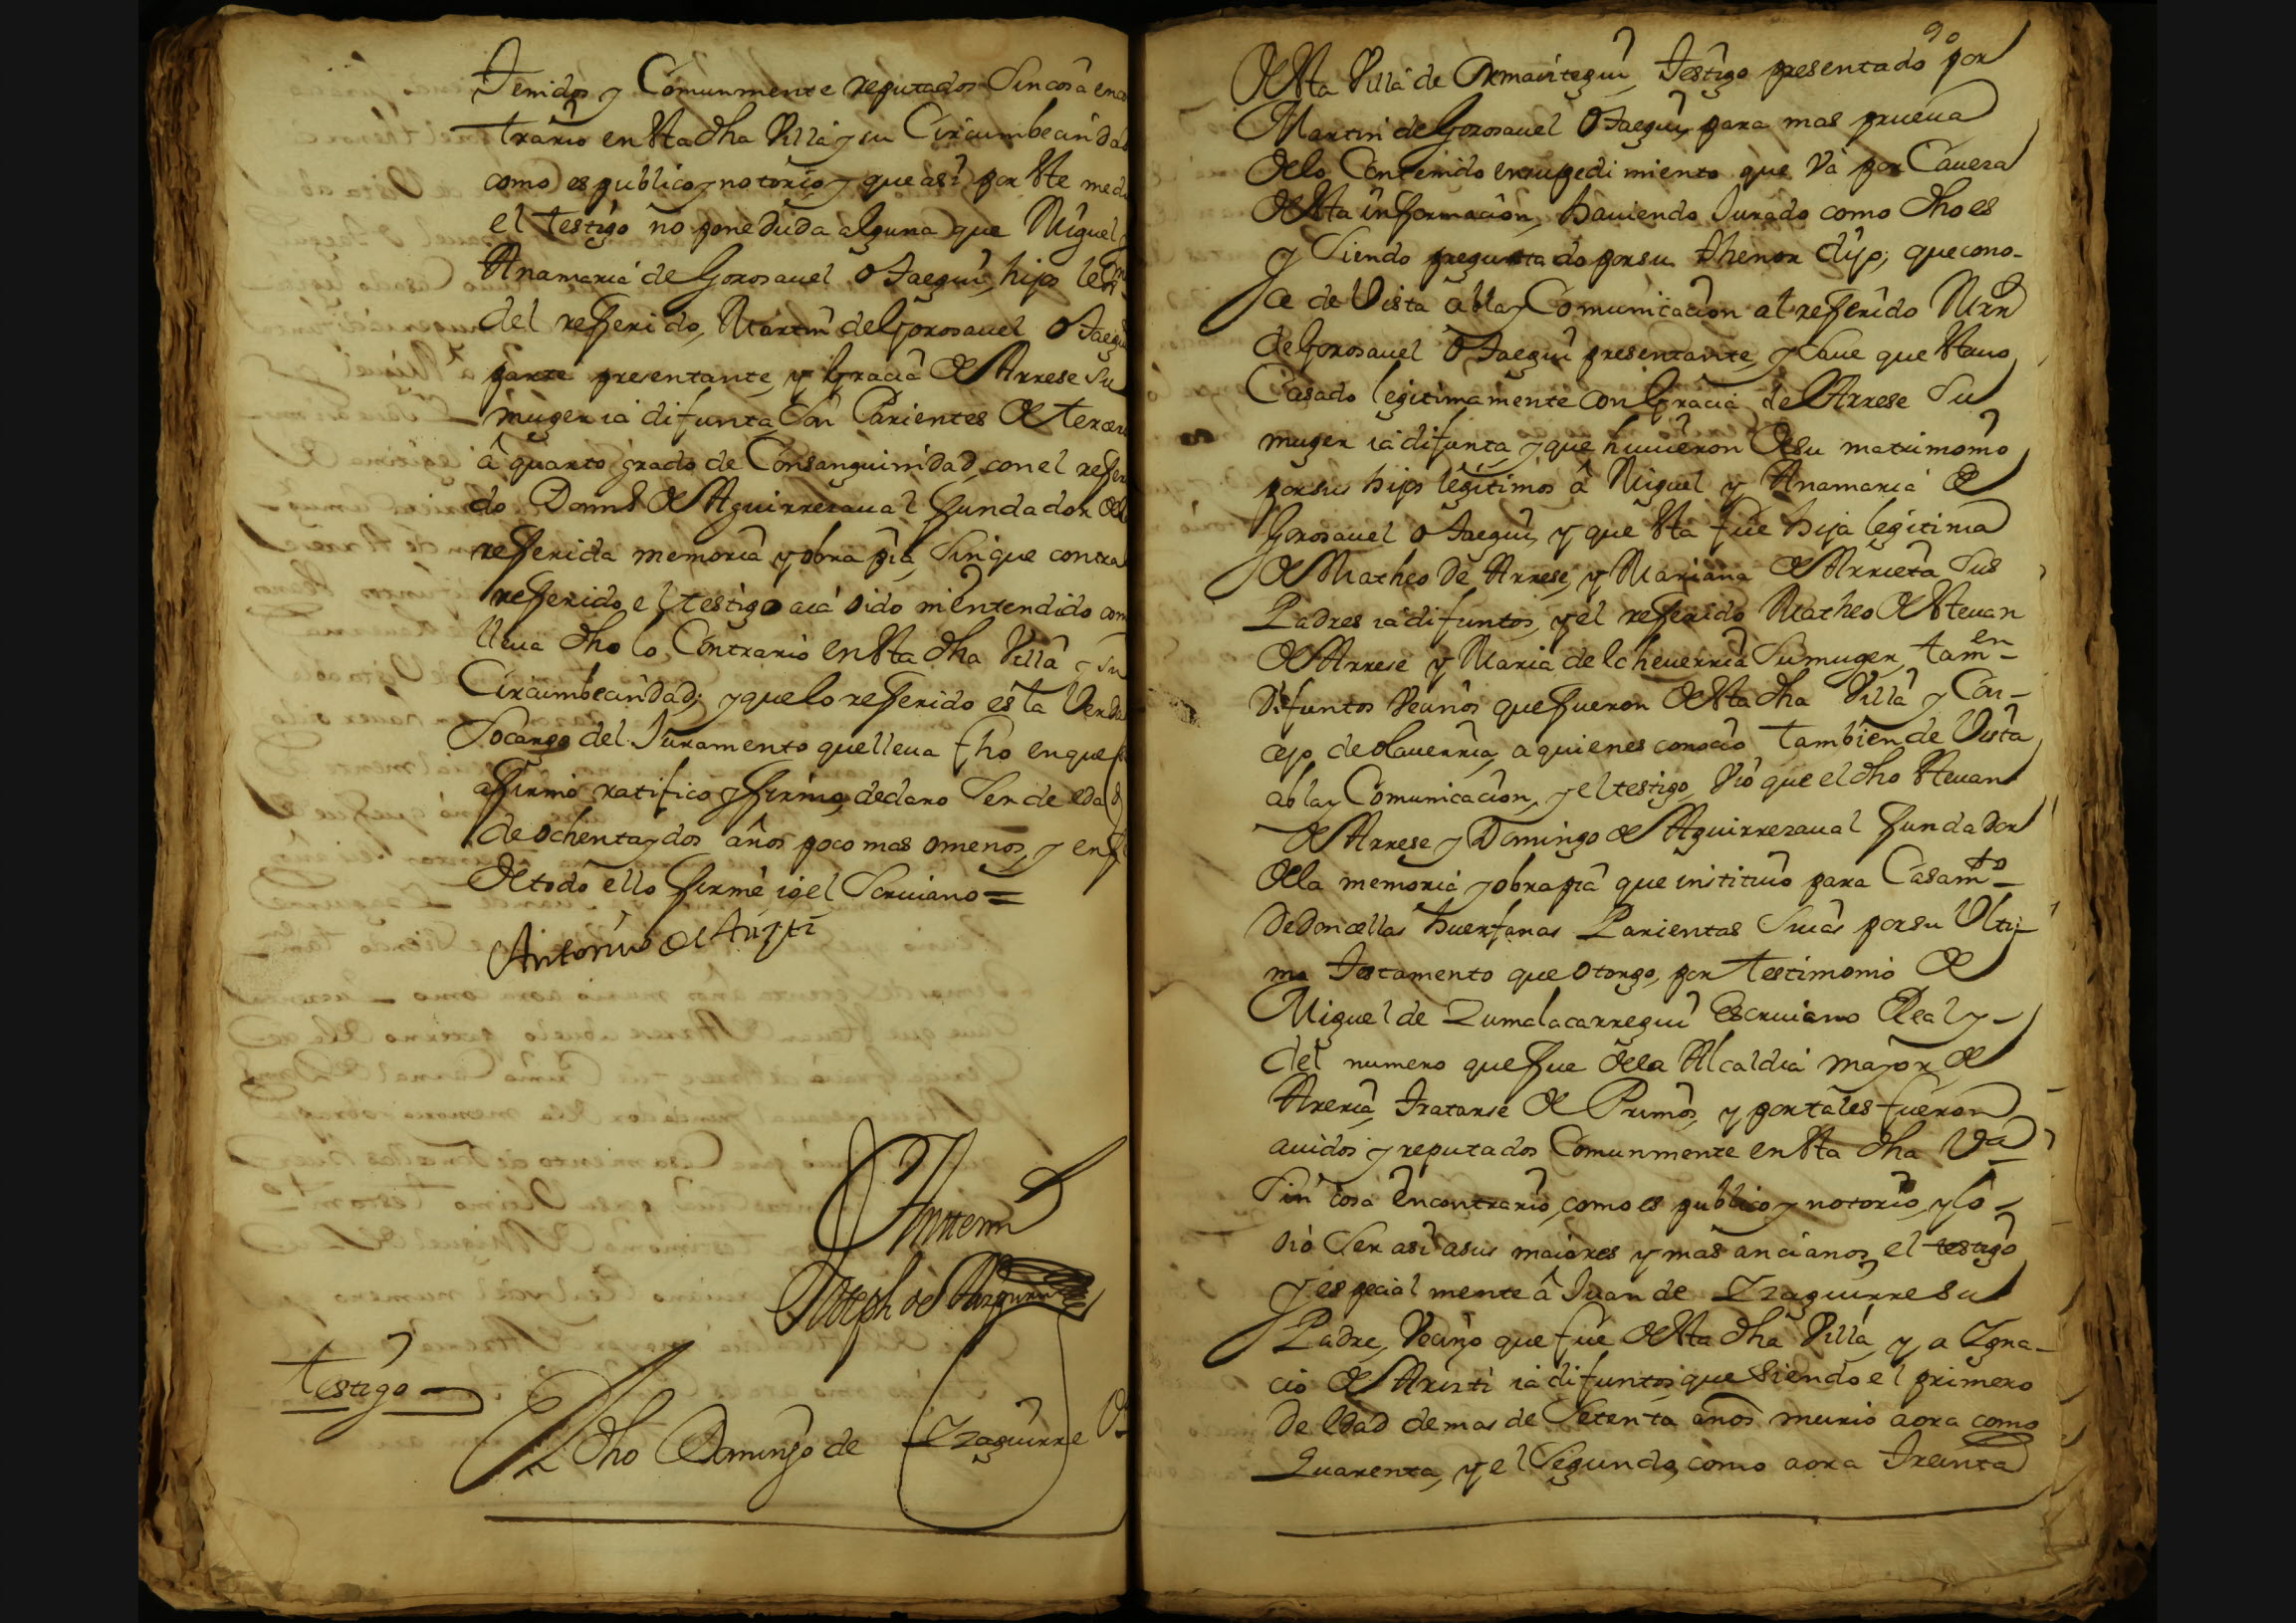 Tenidos y Comunmente reputados Sin cosa encon
trario en esta dha Villa y su Circumbecindad
como es publico y notorio y que asi por este medio
el testigo no pone duda alguna que Miguel y
Anamaria de Gorosauel Otaegui, hijos legmos
del referido, Martin de Gorosauel Otaegui
parte presentante, y Gracia de Arrese su
muger ia difunta Son Parientes de tercero
â quarto grado de Consanguinidad, con el referi
do Domingo de Aguirrezaual fundador dela
referida memoria y obra pia, Sin que contra lo
referido el testigo aia oido ni entendido como
lleua dho lo Contrario en esta dha Villa y su
Circumbecindad; y que lo referido es la Verdad
Socargo del Juramento que lleua fho en que se
affirmo ratifico y firmo, declaro Ser de edad
de ochenta y dos años poco mas o menos, y en fe
de todo ello firmé io el Scriuano =
Antonio de
Antemi
Joseph de
Testigo
El dho Domingo de Yzaguirre Vº
90
de esta Villa de Ormaiztegui, Testigo presentado por
Martin de Gorosauel Otaegui para mas prueua
delo Contenido en su pedimiento que va por Caueza
de esta informacion, hauiendo Jurado como dho es
y Siendo preguntado por su thenor dijo; que cono-
ce de Vista abla y Comunicacion al referido Mrn
de Gorosauel Otaegui presentante, y Saue que estauo
Casado legitimamente con Gracia de Arrese Su
muger ia difunta, y que huuieron de su matrimonio
por sus hijos legitimos â Miguel y Anamaria de
Gorosauel Otaegui, y que esta fue hija legitima
de Matheo de Arrese, y Mariana de Arrieta Sus
Padres ia difuntos, y el referido Matheo de esteuan
de Arrese y Maria de Echeuerria Su muger, tamen
difuntos Vecinos que fueron de esta dha Villa y Con-
cejo de olauerria, a quienes conocio tambien de Vista
abla y Comunicacion, y el testigo, vio que el dho esteuan
de Arrese y Domingo de Aguirrezaual fundador
dela memoria y obra pia que instituio para Casamto
de Doncellas huerfanas Parientas Suias por su Vlti-
mo Testamento que otorgo, por testimonio de
Miguel de Zumalacarregui Escriuano Real y
del numero que fue dela Alcaldia maior de
Areria, Tratarse de Primos, y por tales fueron
auidos y reputados Comunmente en esta dha Va
Sin cosa encontrario, como es publico y notorio, y lo
oiô Ser asi a sus maiores y mas ancianos, el testigo
y especialmente â Juan de Yzaguirre Su
Padre, Vecino que fue de esta dha Villa, y a Igna-
cio de Aristi ia difuntos que Siendo el primero
de edad de mas de Setenta años murio aora como
Quarenta, y el Segundo, como aora Treinta